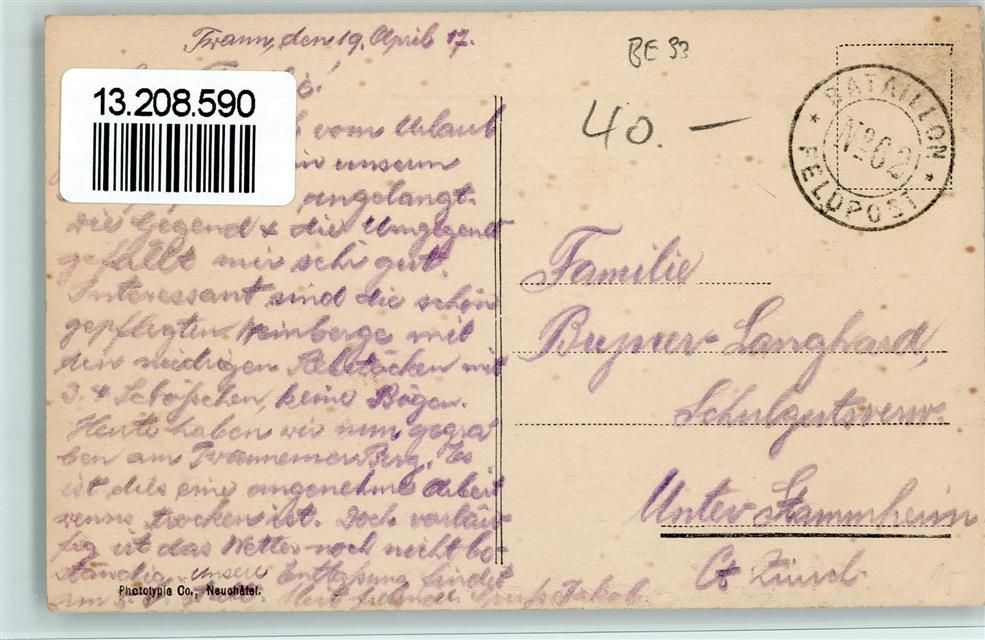 Twann, den 19. April 17.
13.208.590
vom Urlaub
in unserm
angelangt.
Die Gegend & die Umgegend
gefällt mir sehr gut.
Interessant sind die schön
gepflegten Weinberge mit
den niedrigen Rebstöcken mit
3-4 Schösschen, keine Bögen.
Heute haben wir nun gegra-
ben am Twannemer Berg. Es
ist dies eine angenehme Arbeit
wenns trocken ist. Doch vorläu-
fig ist das Wetter noch nicht be-
ständig. unsere Entlassung findet
am Mit Gruss Jakob
Phototypie Co., Neuchâtel.
BE 93
40.—
BATAILLON
No 62
FELDPOST
Familie
Langhard,
Schulgutsverw.
Unter Stammheim
Ct Zürich